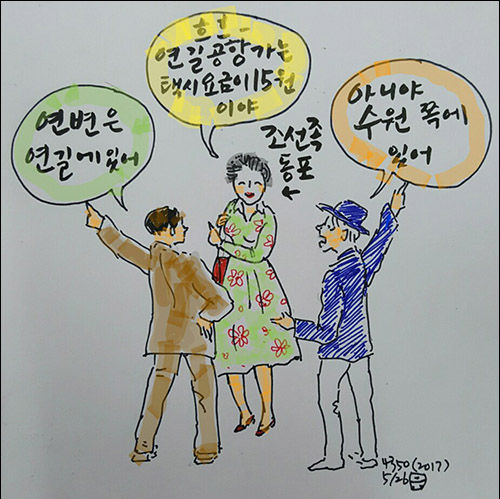 흐흐
연길공항가는
택시요금이15원
이야
연변은
연길에있어
조선족
동포
아니야
수원 쪽에
있어
4350(2017)
5/26